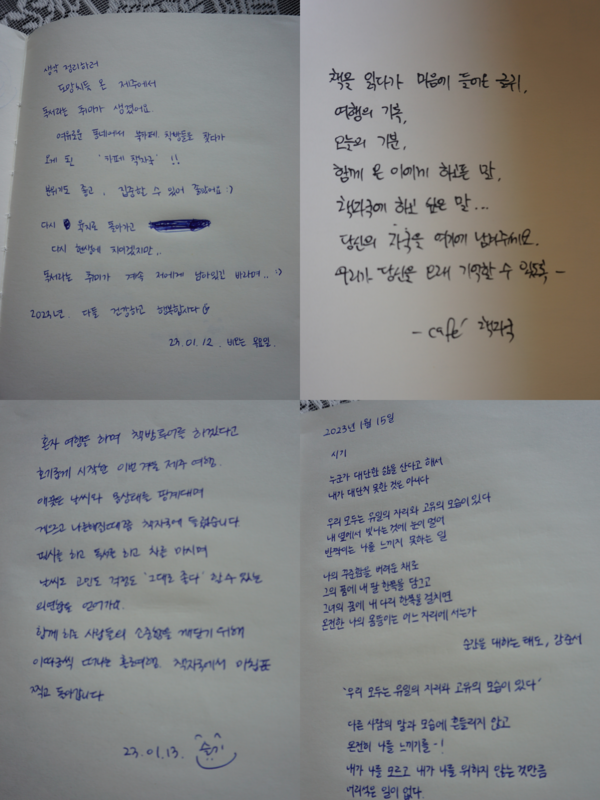 생각 정리하러
도망치듯 온 제주에서
독서라는 취미가 생겼어요.
여유로운 동네에서 북카페, 책방들을 찾다가
오게 된 '카페 책자국' !!
분위기도 좋고, 집중할 수 있어 좋았어요 :)
다시 육지로 돌아가고
다시 현생에 치이겠지만,,
독서라는 취미가 계속 저에게 남아있길 바라며.. :)
2023년. 다들 건강하고 행복합시다
23.01.12. 비오는 목요일.
책을 읽다가 마음에 들어온 글귀,
여행의 기록,
오늘의 기분,
함께 온 이에게 하고픈 말,
책자국에 하고 싶은 말...
당신의 자국을 여기에 남겨주세요.
우리가 당신을 오래 기억할 수 있도록 –
– café 책자국
혼자 여행을 하며 책방투어를 하겠다고
호기롭게 시작한 이번 겨울 제주 여행.
애꿎은 날씨와 몸상태를 핑계대며
게으르고 나른해질때쯤 책자국에 들렀습니다
필사를 하고 독서를 하고 차를 마시며
날씨도 고민도 걱정도 '그대로 좋다' 할 수 있는
의연함을 얻어가요.
함께 하는 사람들의 소중함을 깨닫기 위해
이따금씩 떠나는 혼로여행. 책자국에서 마침표
찍고 돌아갑니다
23.01.13. 슬기
2023년 1월 15일
시기
누군가 대단한 삶을 산다고 해서
내가 대단치 못한 것은 아니다
우리 모두는 유일의 자리와 고유의 모습이 있다
내 옆에서 빛나는 것에 눈이 멀어
반짝이는 나를 느끼지 못하는 일
나의 꾸준함을 버려둔 채로
그의 품에 내 팔 한쪽을 담그고
그녀의 품에 내 다리 한쪽을 걸치면
온전한 나의 몸뚱이는 어느 자리에 서는가
순간을 대하는 태도, 강준서
'우리 모두는 유일의 자리와 고유의 모습이 있다'
다른 사람의 말과 모습에 흔들리지 않고
온전히 나를 느끼기를-!
내가 나를 모르고 내가 나를 위하지 않는 것만큼
어리석은 일이 없다.